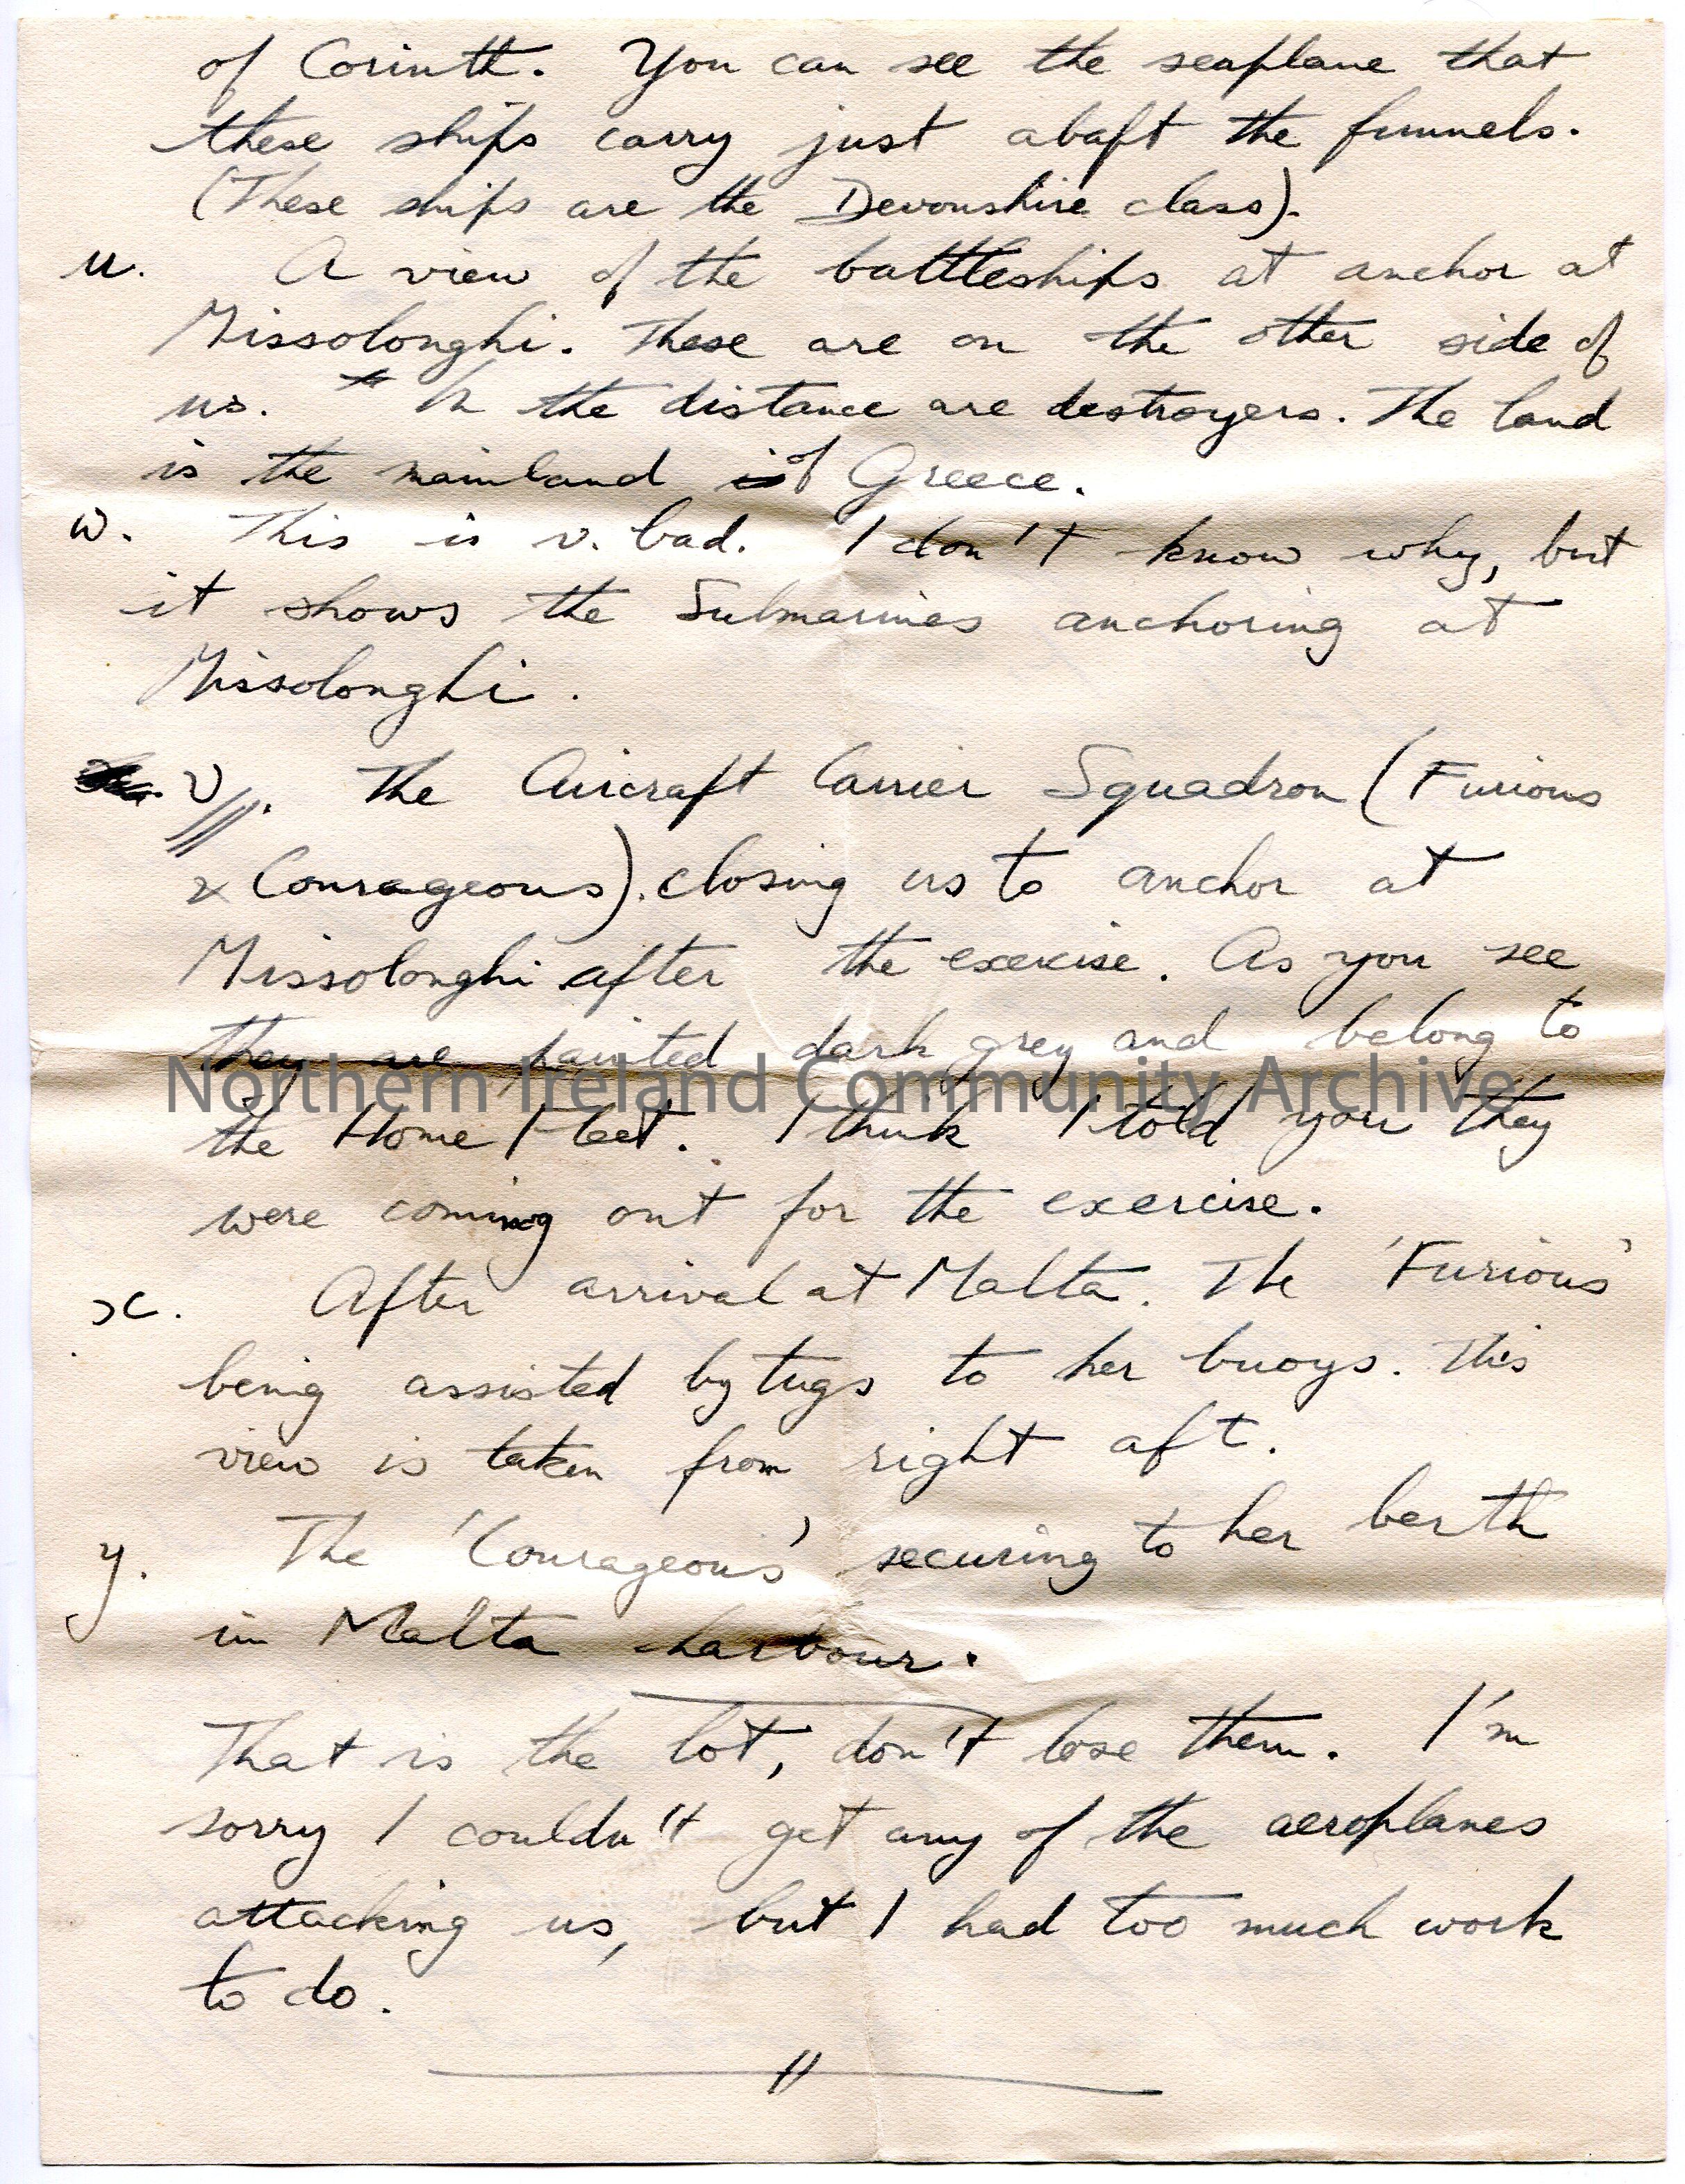 of Corinth. You can see the seaplane that
these ships carry just abaft the funnels.
(These ships are the Devonshire class).
u. A view of the battleships at anchor at
Missolonghi. These are on the other side of
us. In the distance are destroyers. The land
is the mainland of Greece.
w. This is v. bad. I don't know why, but
it shows the Submarines anchoring at
Missolonghi.
v. The Aircraft Carrier Squadron (Furious
& Courageous). closing us to anchor at
Missolonghi after the exercise. As you see
they are painted dark grey and belong to
Northern Ireland Community Archive
the Home Fleet. I think I told you they
were coming out for the exercise.
x. After arrival at Malta. The 'Furious'
being assisted by tugs to her buoys. This
view is taken from right aft.
y. The 'Courageous' securing to her berth
in Malta harbour.
That is the lot, don't lose them. I'm
sorry I couldn't get any of the aeroplanes
attacking us, but I had too much work
to do.